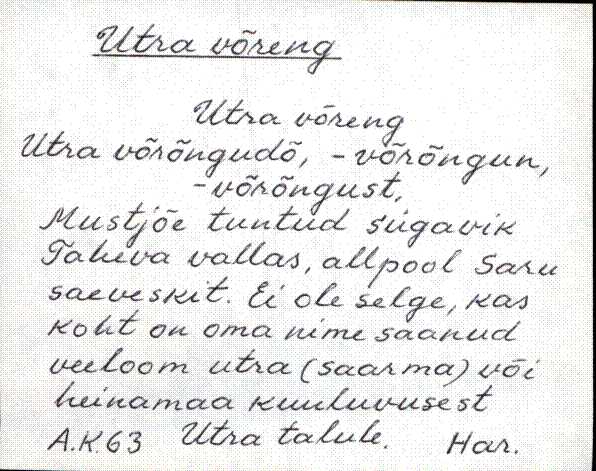 Utra võreng
Utra võreng
Utra võrõngudõ, -võrõngun,
-võrõngust.
Mustjõe tuntud sügavik
Taheva vallas, allpool Saru
saeveskit. Ei ole selge, kas
koht on oma nime saanud
veeloom utra (saarma) või
heinamaa kuuluvusest
A.K.63 Utra talule. Har.